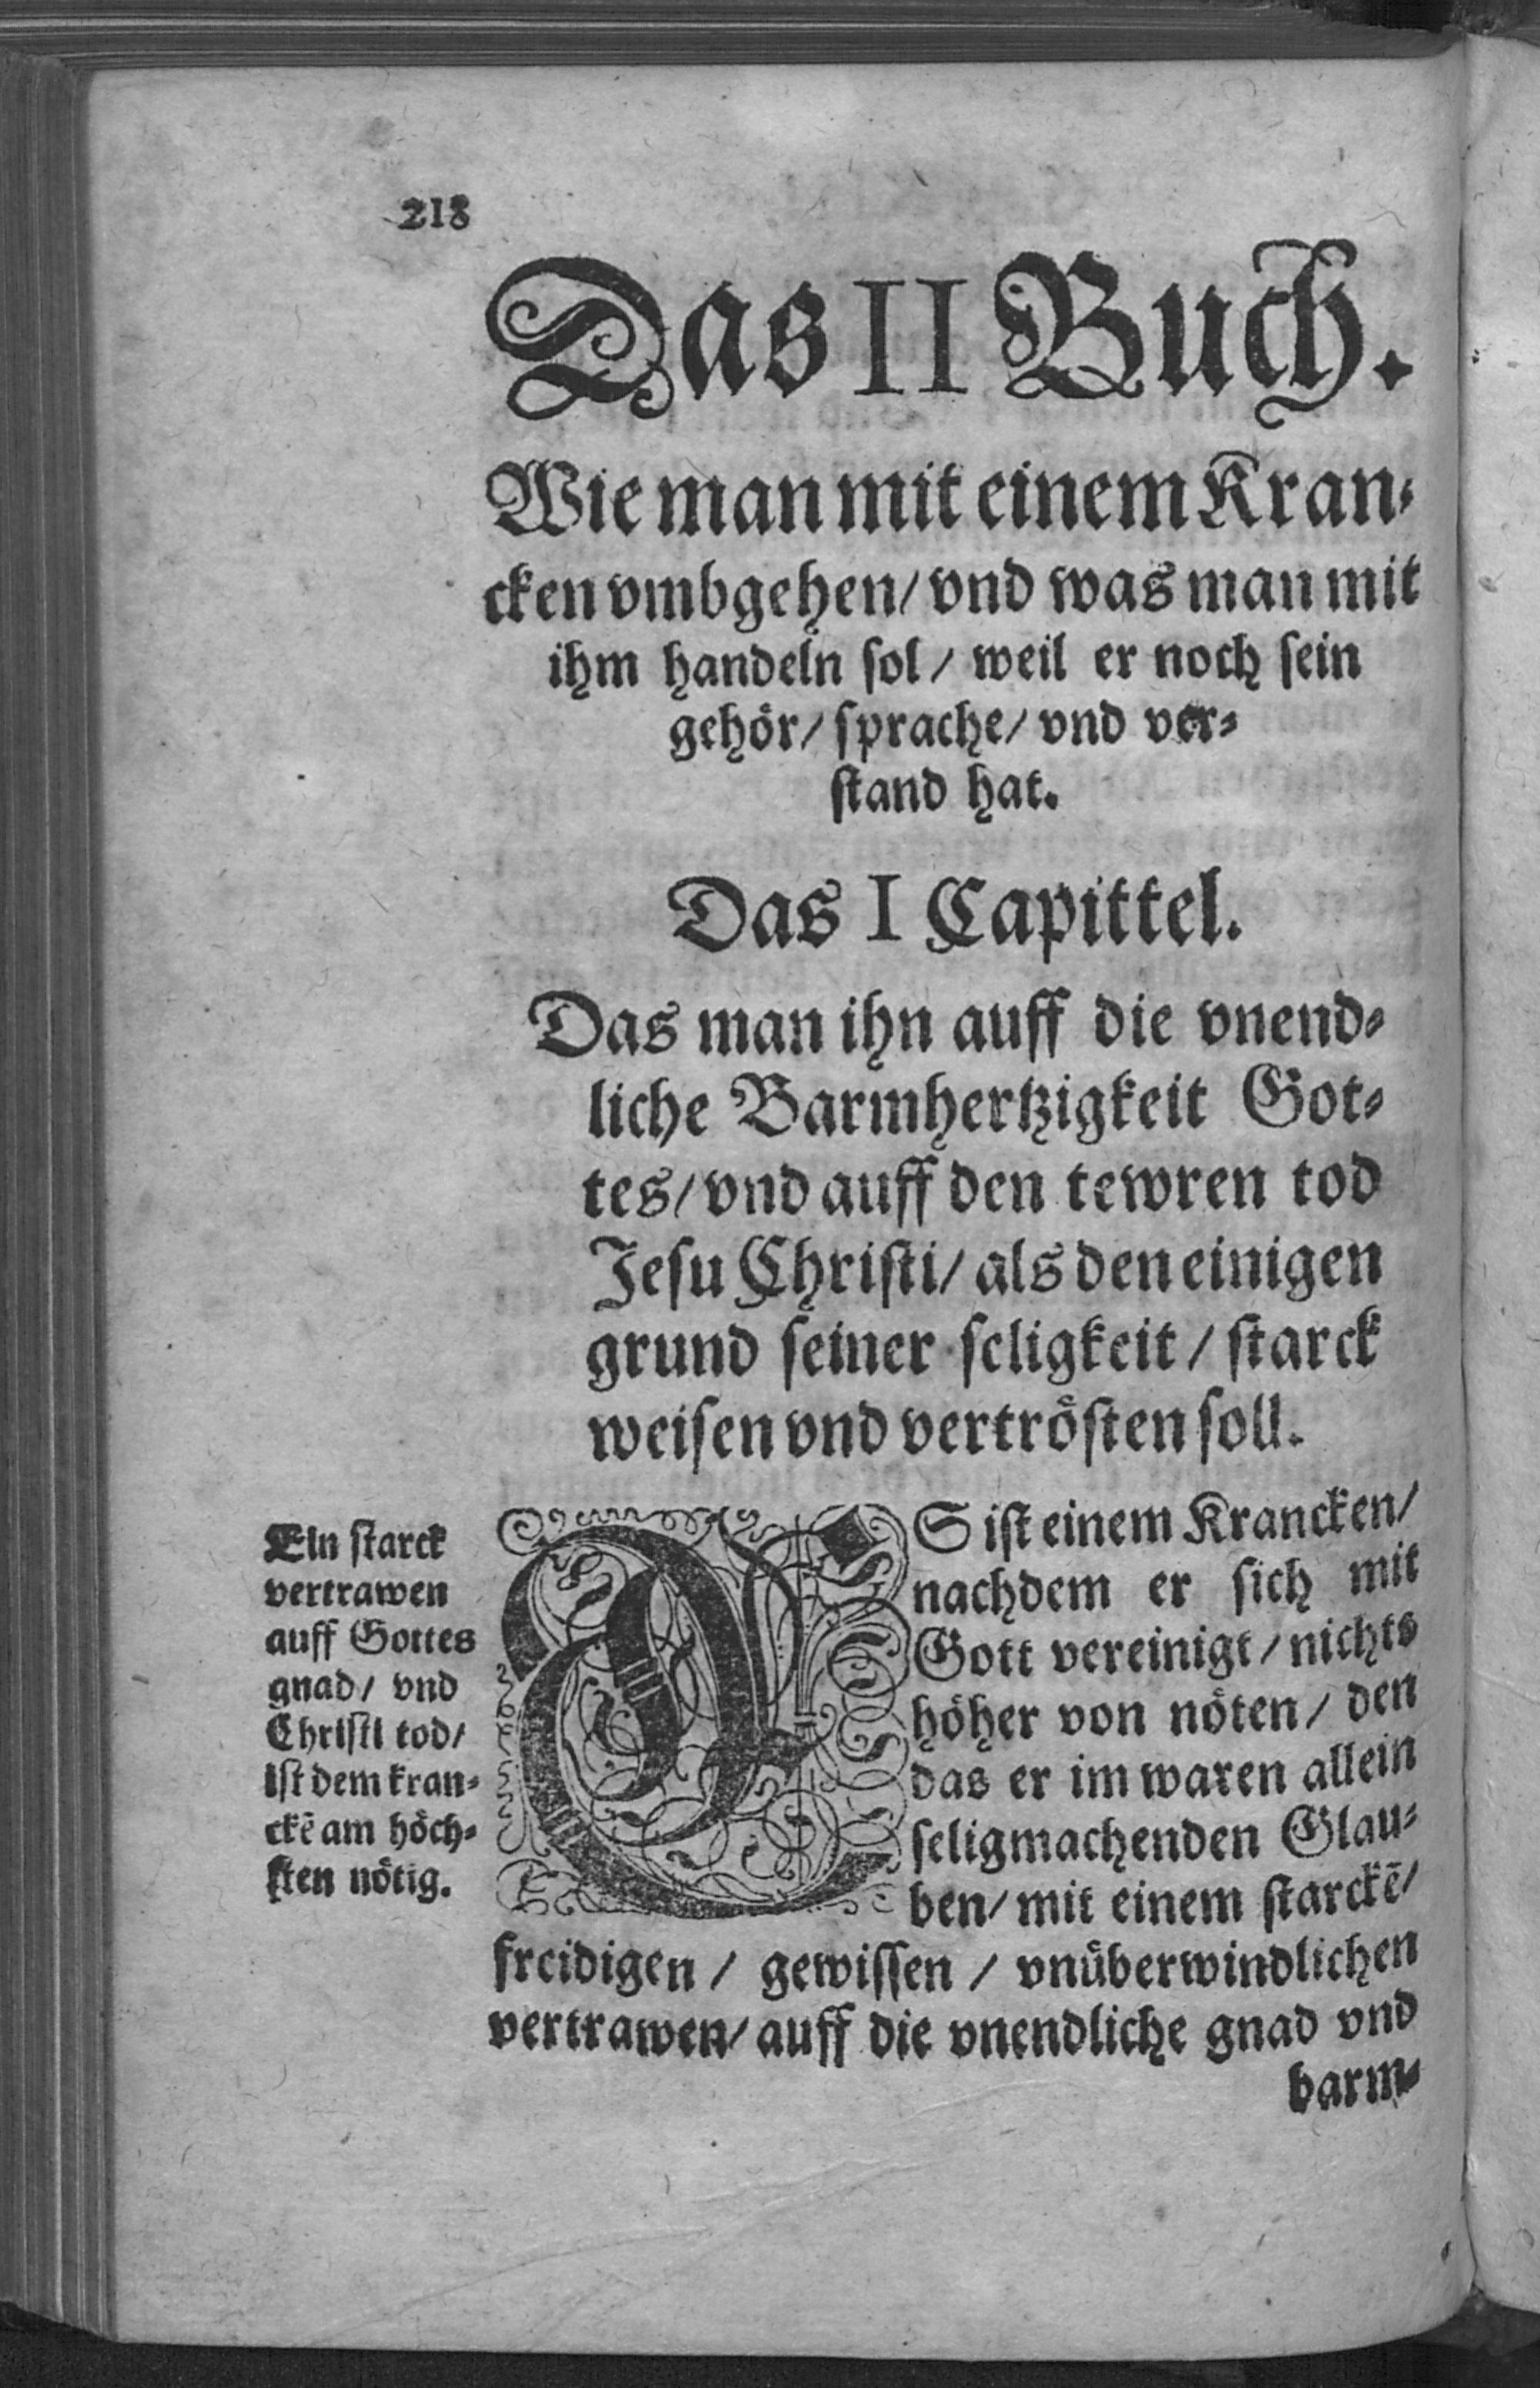 218
Das II Buch.
Wie man mit einem Kran-
cken vmbgehen/ vnd was man mit
ihm handeln sol/ weil er noch sein
gehör/ sprache/ vnd ver-
stand hat.
Das I Capittel.
Das man ihn auff die vnend-
liche Barmhertzigkeit Got-
tes/ vnd auff den tewren tod
Jesu Christi/ als den einigen
grund seiner seligkeit/ starck
weisen vnd vertrösten soll.
Ein starck
vertrawen
auff Gottes
gnad/ vnd
Christi tod/
ist dem kran-
ckē am höch-
sten nötig.
ES ist einem Krancken/
nachdem er sich mit
Gott vereinigt/ nichts
höher von nöten/ den
das er im waren allein
seligmachenden Glau-
ben/ mit einem starckē/
freidigen/ gewissen/ vnüberwindlichen
vertrawen/ auff die vnendliche gnad vnd
barm-